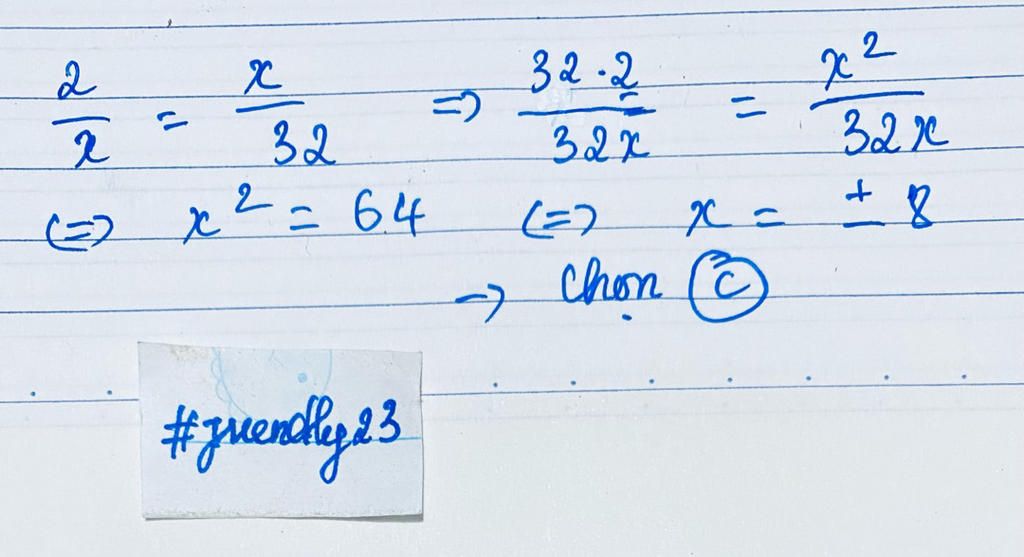 2/x = x/32 => 32.2/32x = x²/32x
<=> x² = 64 <=> x = ±8
-> chọn C
#friendly23